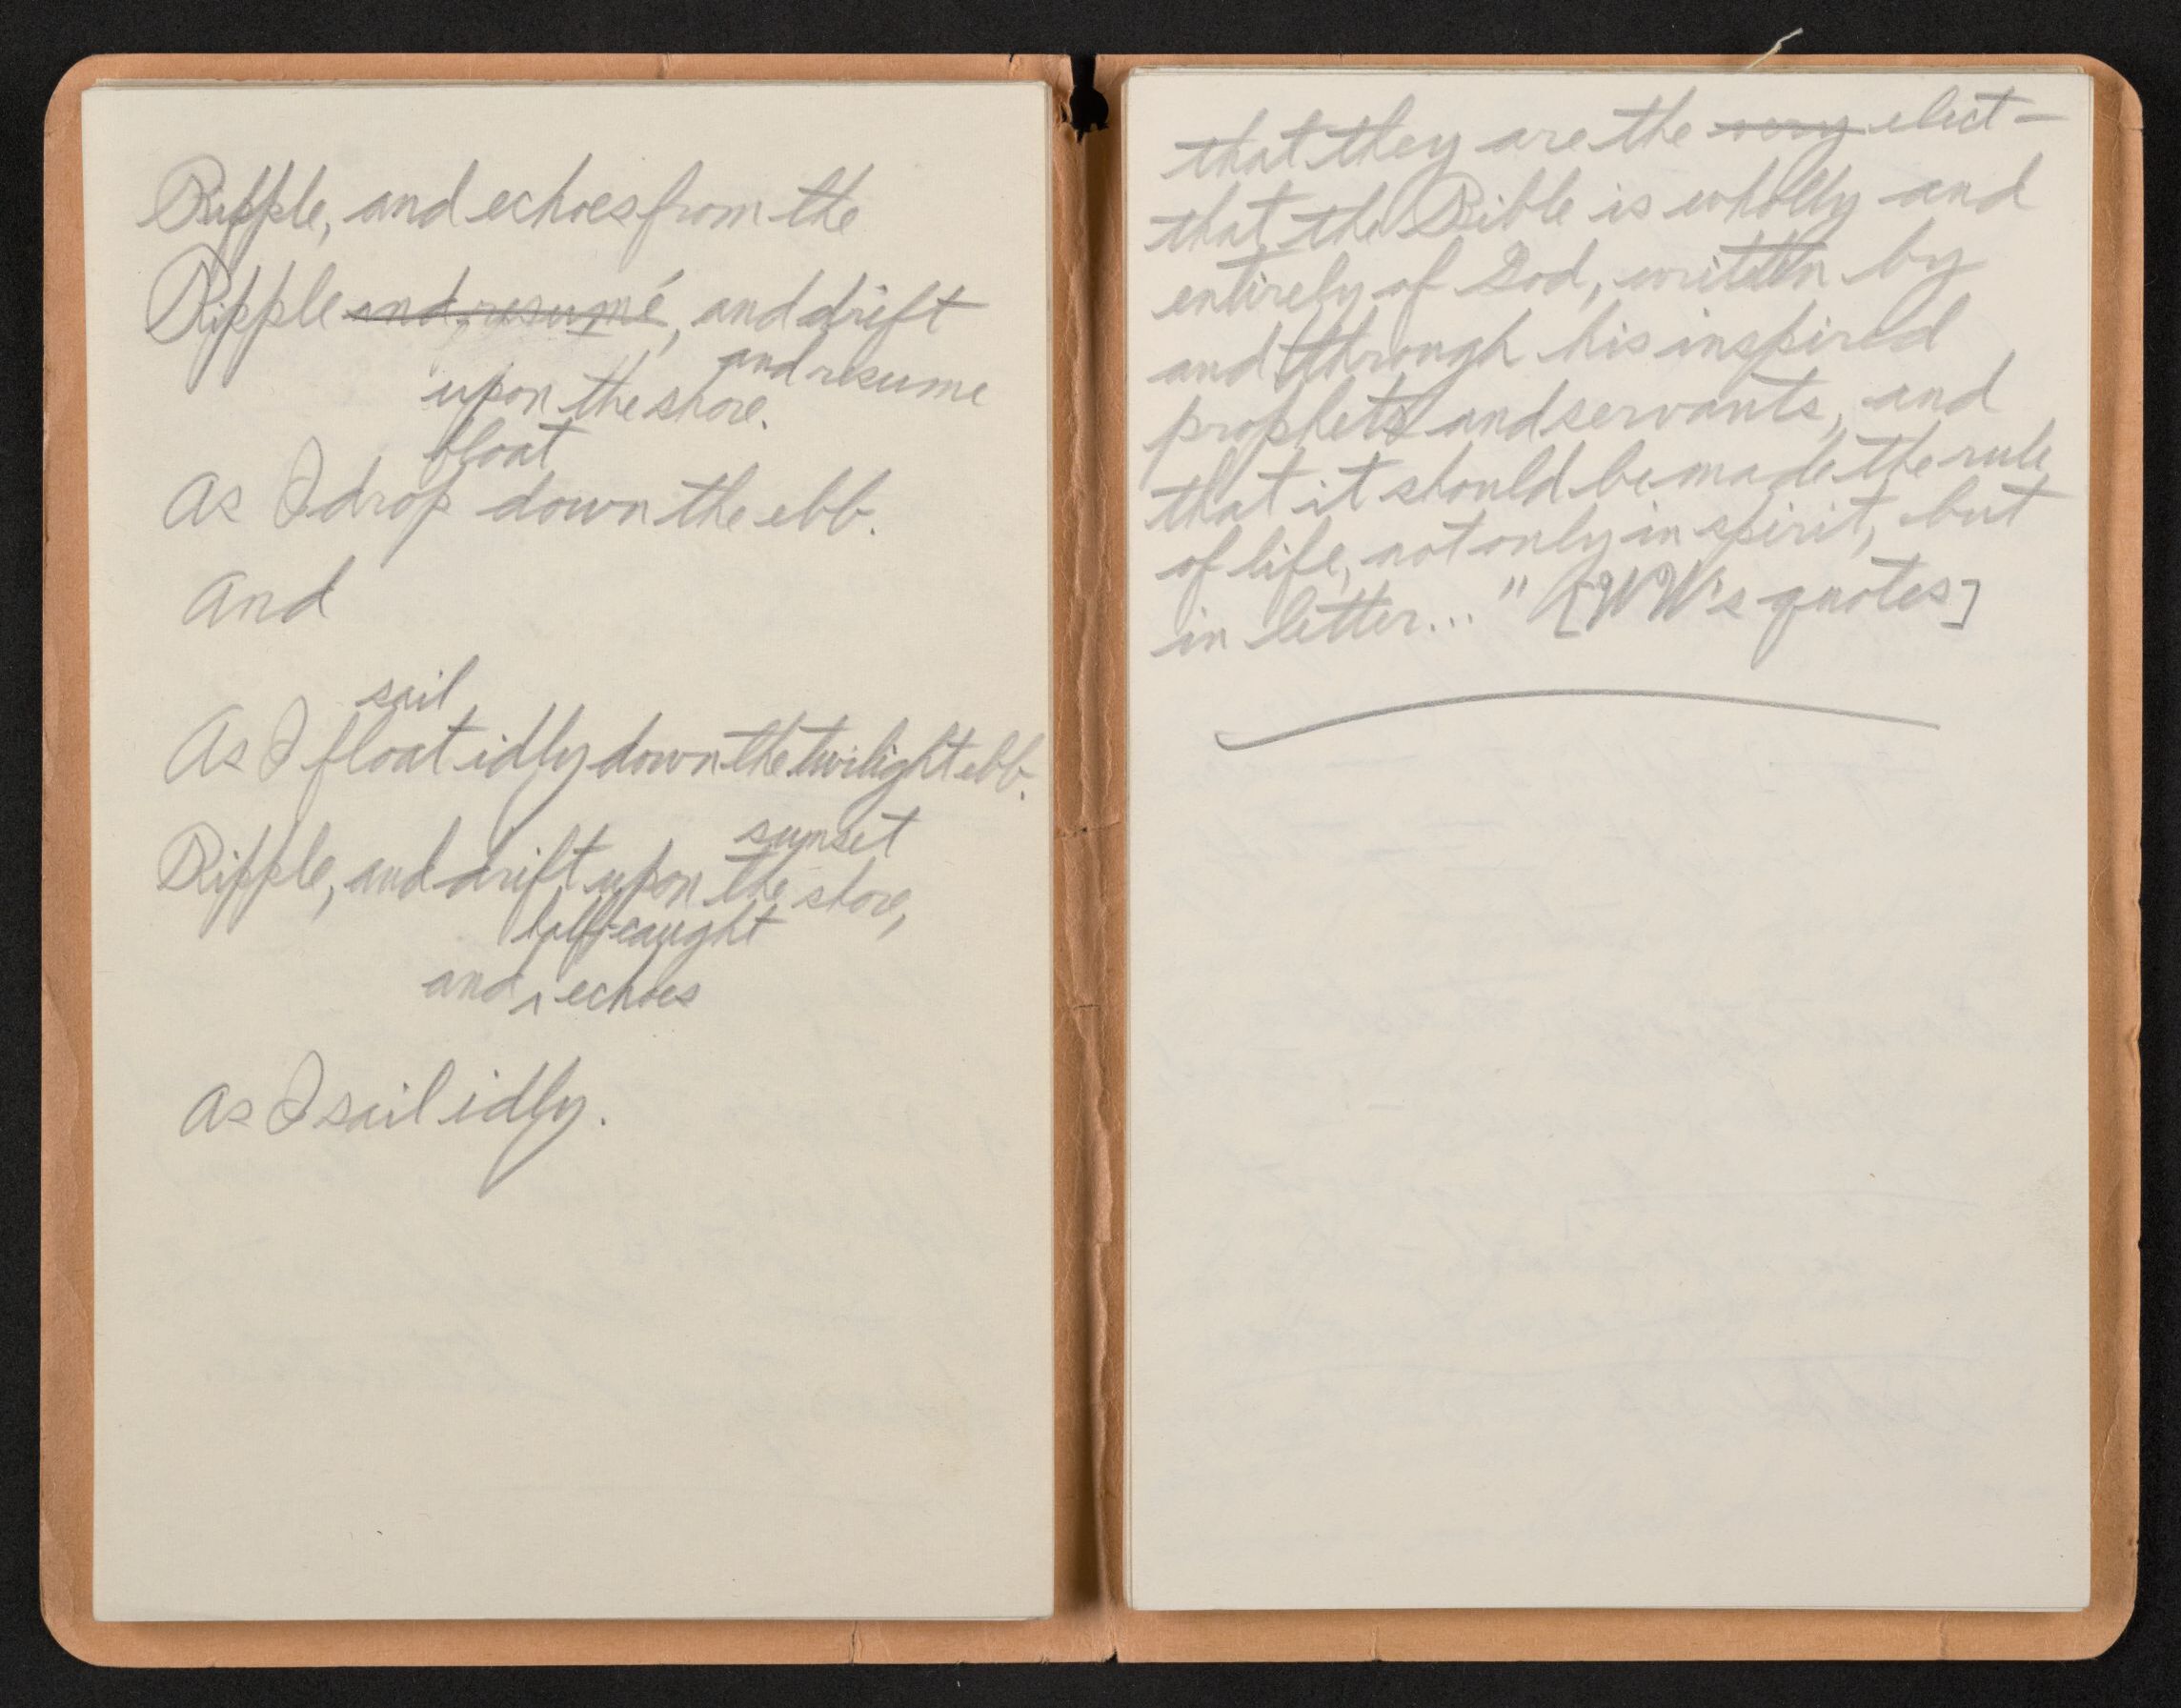 Ripple, and echoes from the
Ripple and resumé, and drift
and resume
upon the shore.
float
As I drop down the ebb.
And
sail
As I float idly down the twilight ebb.
sunset
Ripple, and drift upon the shore,
half-caught
and ‸ echoes
As I sail idly.
that they are the very elect—
that the Bible is wholly and
entirely of God, written by
and through his inspired
prophets and servants, and
that it should be made the rule
of life, not only in spirit, but
in letter..." [WW's quotes]